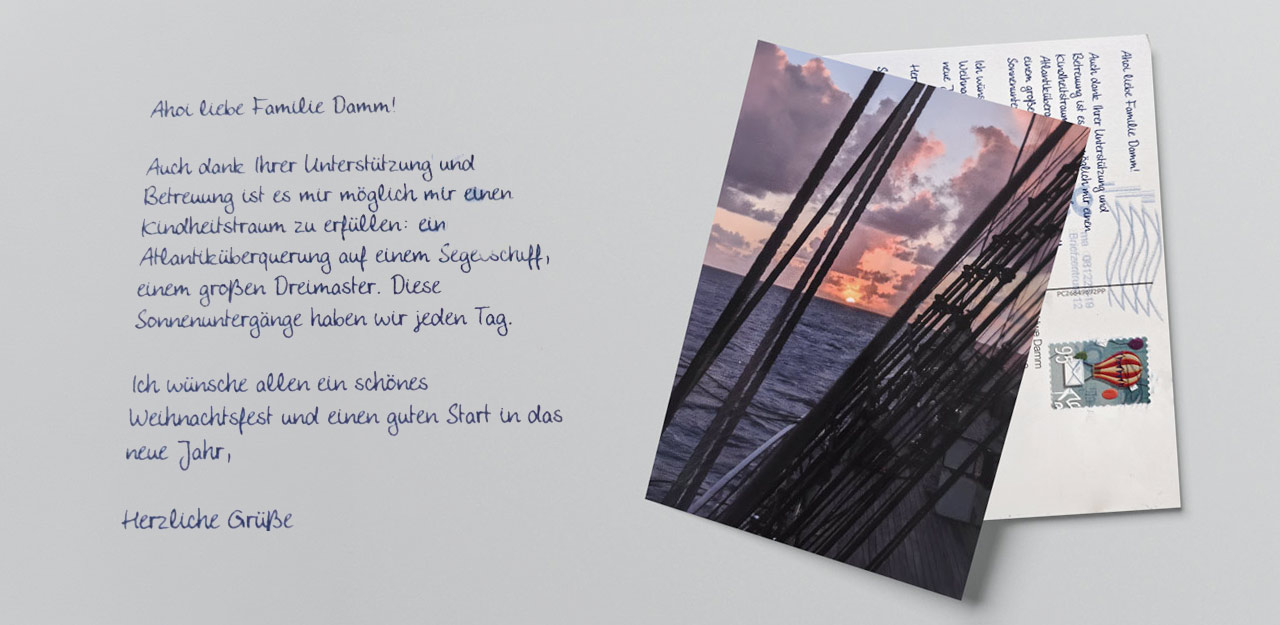 Ahoi liebe Familie Damm!
Auch dank Ihrer Unterstützung und
Betreuung ist es mir möglich mir einen
Kindheitstraum zu erfüllen: ein
Atlantiküberquerung auf einem Segelschiff,
einem großen Dreimaster. Diese
Sonnenuntergänge haben wir jeden Tag.
Ich wünsche allen ein schönes
Weihnachtsfest und einen guten Start in das
neue Jahr,
Herzliche Grüße
Ahoi liebe Familie Damm!
Auch dank Ihrer Unterstützung und
Betreuung ist es möglich mir einen
Kindheitstraum
einem große
Ich wüns
Weihna
neue J
Her
Damm
95